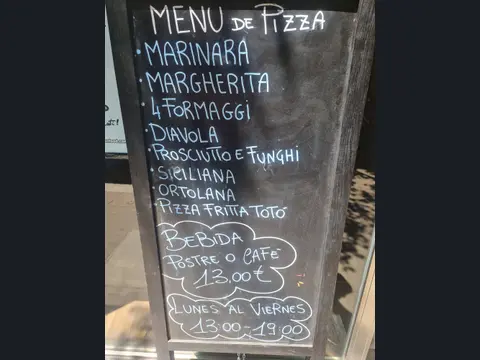 MENU DE PIZZA
• MARINARA
• MARGHERITA
• 4 FORMAGGI
• DIAVOLA
• PROSCIUTTO E FUNGHI
• SICILIANA
• ORTOLANA
• PIZZA FRITTA TOTÓ
BEBIDA
POSTRE O CAFÉ
13,00€
LUNES AL VIERNES
13:00-19:00